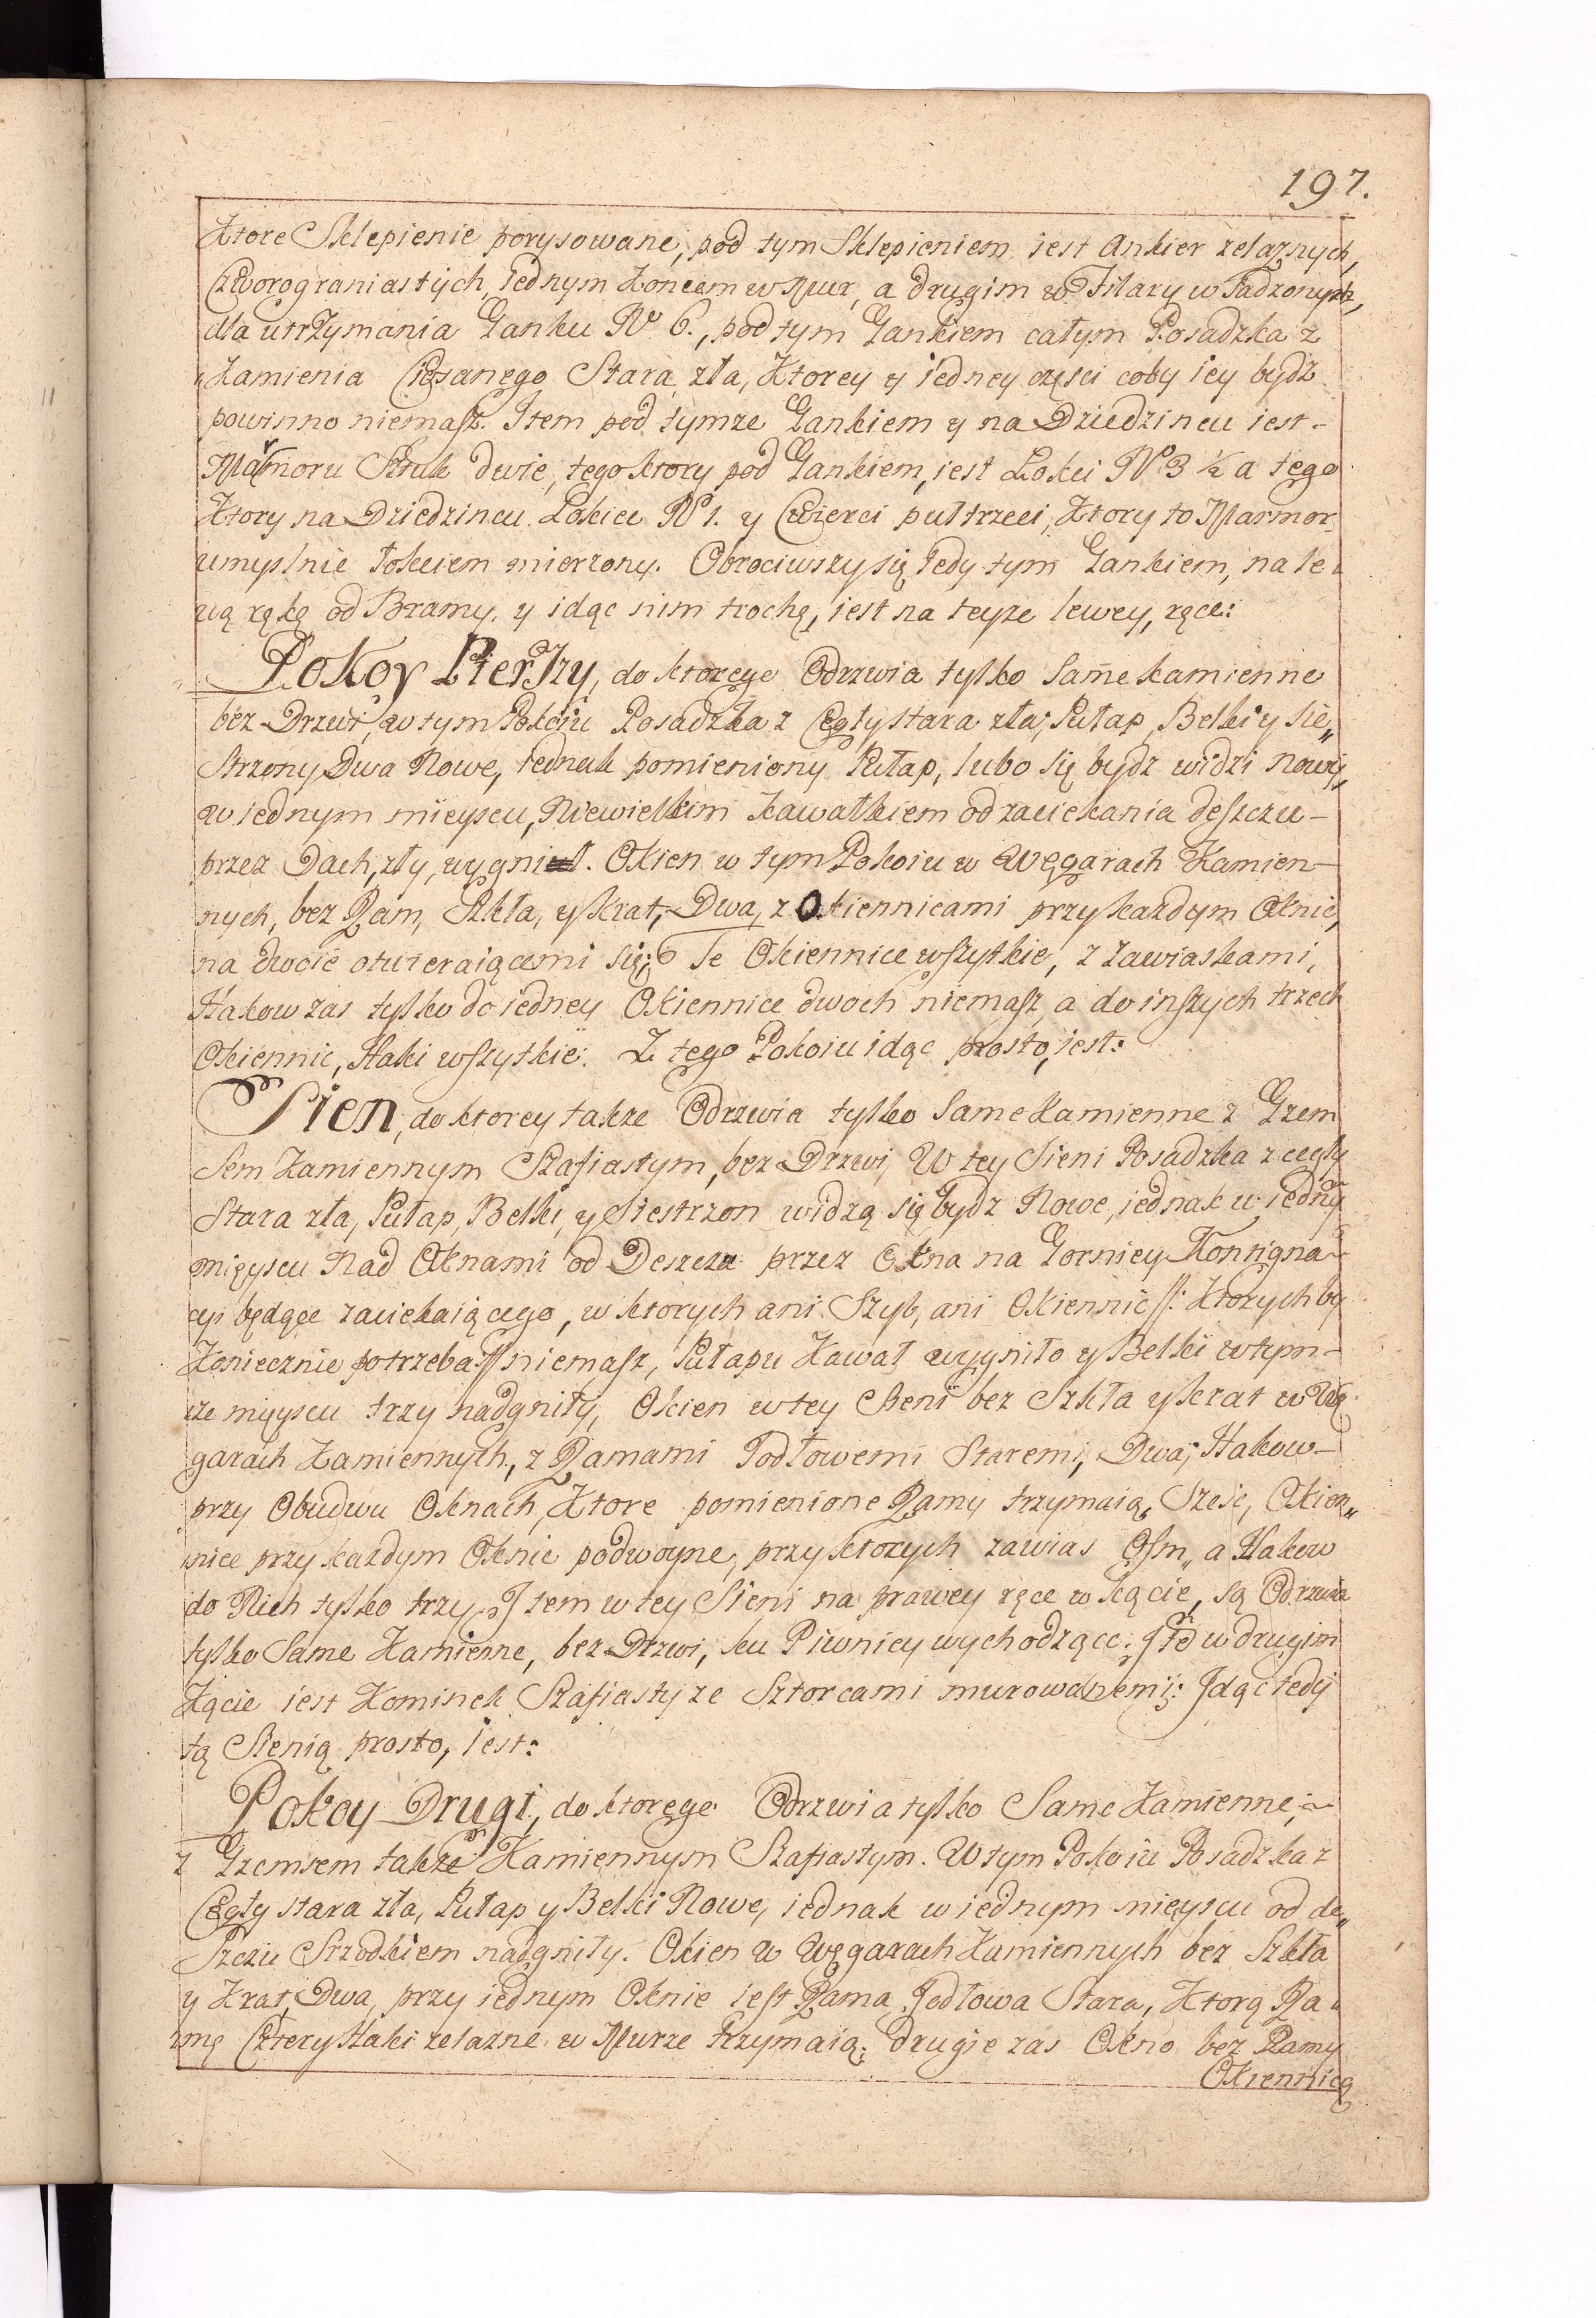 197.
Ktore Sklepienie porysowane, pod tym Sklepieniem iest Ankier zelaznych,
Czworograniastych, iednym Koncem w Mur, a drugim w Filary wsadzonych,
dla utrzymania Ganku No 6., pod tym Gankiem całym Posadzka z
Kamienia Ciesanego Stara zła, Ktorey y iedney częsci coby iey bydz
powinno niemasz. Item pod tymze Gankiem y na Dziedzincu iest-
Marmoru Sztuk dwie, tego ktory pod Gankiem, iest Łokci No 3 ½ a tego
Ktory na Dziedzincu Łokiec No 1. y Cwierci pultrzeci, Ktory to Marmor
umyslnie łokciem mierzony. Obrociwszy się tedy tym Gankiem, na le-
wą ręką od Bramy, y idąc nim trochę, iest na teyze lewey, ręce:
Pokoy Pierszy, do ktorego Odrzwia tylko Same kamienne
bez Drzwi, w tym Pokoiu Posadzka z Cegły stara zła; Pułap, Belki y Sie„
Strzony Dwa Nowe, iednak pomieniony Pułap, lubo się bydz widzi nowy,
w iednym mieyscu, Niewielkim kawałkiem od zaciekania deszczu-
przez Dach, zły, wygnił. Okien w tym Pokoiu w Węgarach Kamien-
nych, bez Ram, Szkła, y krat, Dwa, z Okiennicami przy kazdym Oknie,
na dwoie otwieraiącemi się; Te Okiennice wszytkie, z zawiaskami,
Hakow zas tylko do iedney Okiennice dwoch niemasz, a do inszych trzech
Okiennic, Haki wszytkie. Z tego Pokoiu idąc prosto, iest:
Sien, do ktorey takze Odrzwia tylko Same Kamienne z Gzem
Sem Kamiennym Szafiastym, bez Drzwi, W tey Sieni Posadzka z cegły
Stara zła, Pułap, Belki, y Siestrzon widzą się bydz Nowe, iednak w iedny
mieyscu Nad Oknami od Deszcza przez Okna na Gorniey Kontigna-
cyi będące zaciekaiącego, w ktorych ani Szyb, ani Okiennic //: Ktorych by
Koniecznie potrzeba :// niemasz, Pułapu Kawał wygniło y Belki w tym-
ze mieyscu trzy nadgniły, Okien w tey Sieni bez Szkła y krat w Wę
garach Kamiennych, z Ramami Jodłowemi Staremi, Dwa; Hakow-
przy Obudwu Oknach, Ktore pomienione Ramy trzymaią, Szesc, Okien„
nice przy kazdym Oknie podwoyne, przy ktorych zawias Osm, a Hakow
do Nich tylko trzy. Item w tey Sieni na prawey ręce w kącie, są Odrzwia
tylko Same Kamienne, bez Drzwi, ku Piwnicy wychodzące. Ite w drugim
Kącie iest Kominek Szafiasty ze Sztorcami murowanemi: Idąc tedy
tą Sienią prosto, iest:
Pokoy Drugi, do ktorego Odrzwia tylko Same Kamienne,
z Gzemsem takze Kamiennym Szafiastym. W tym Pokoiu Posadzka z
Cegły stara zła, Pułap y Belki Nowe, iednak w iednym mieyscu od de„
Szczu Srzodkiem nadgniły. Okien w Węgarach Kamiennych bez Szkła
y Krat, Dwa, przy iednym Oknie iest Rama Jodłowa Stara, Ktorą Ra-
mę Cztery Haki zelazne w Murze trzymaią; drugie zas Okno bez Ramy
Okiennicą